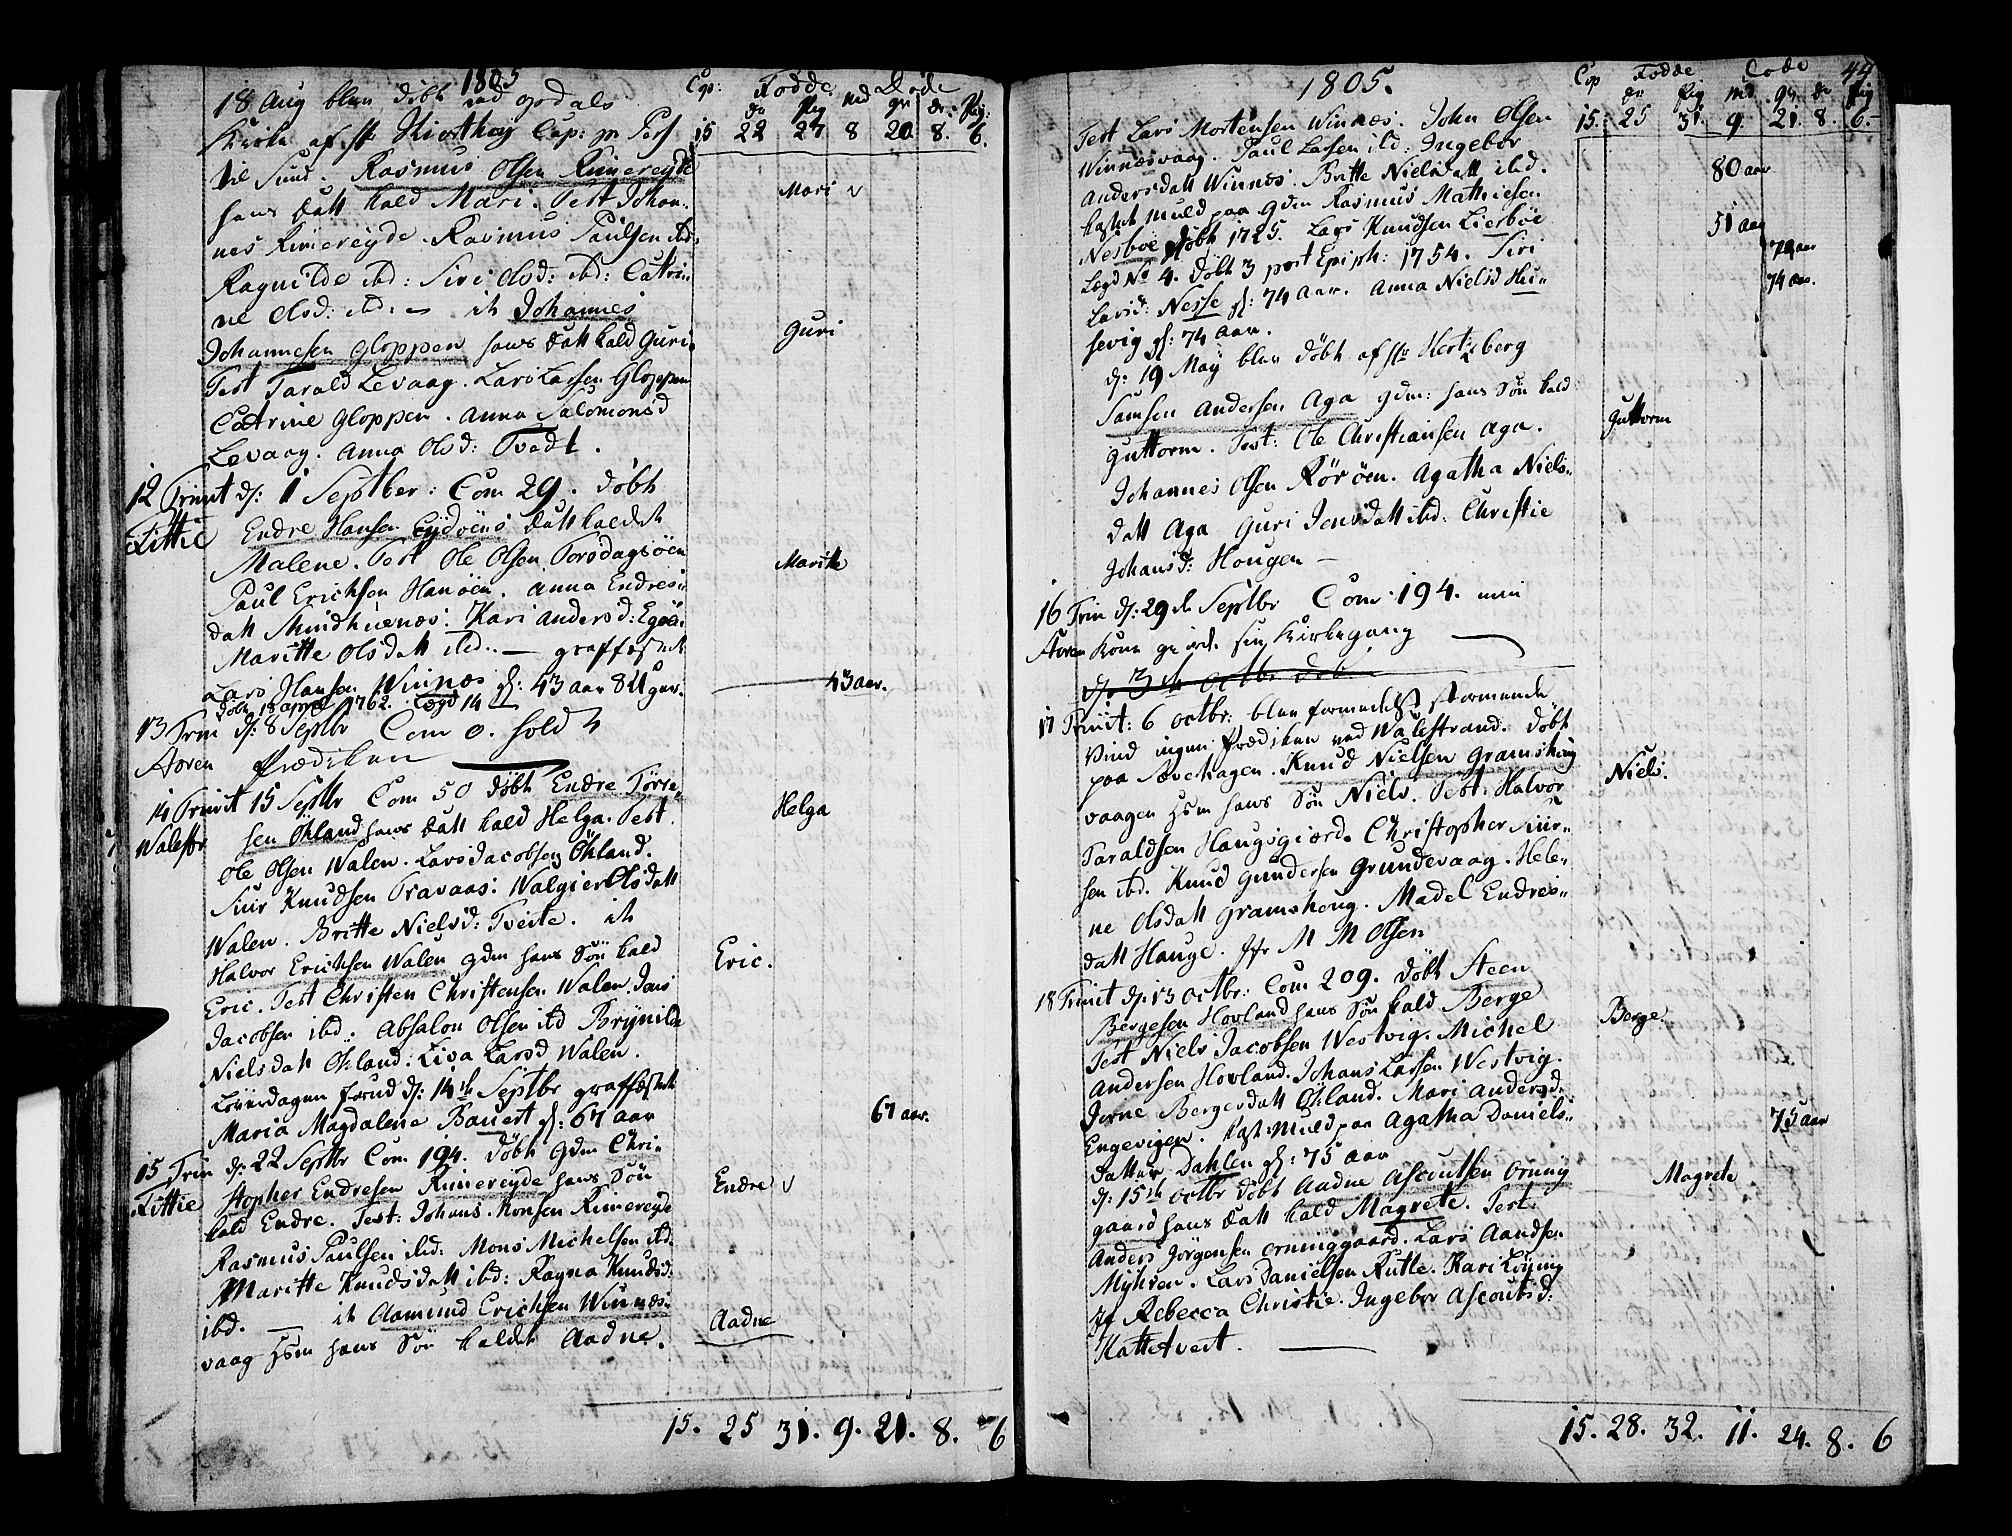 1805
18 Aug blev døbt ved Opdals
Kirke af Hr Kierthøy Cap: pr Pers
til Sund. Rasmus Olsen Rimereyde
hans Datt kald Mari. Test Johan-
nes Rimereyde. Rasmus Paulsen ibd:
Ragnilde ibd: Siri Olsd: ibd: Catri-
ne Olsd: ibd: — it Johannes
Johannesen Gloppen hans Datt kald Guri.
Test Tarald Levaag. Lars Larsen Gloppen
Catrine Gloppen. Anna Salomonsd
Levaag. Anna Olsd: Tvedt.
12 Trinit d: 1 Septber: Com 29. døbt
Fittie Endre Hansen Eydøens Datt kaldet
Malene. Test Ole Olsen Torsdagsøen
Paul Erichsen Hanøen. Anna Endres-
datt Skindhuenæs. Kari Andersd: Egøe.
Maritte Olsdatt ibd. — graffæstet
Lars Hansen Winnæs gl: 43 aar 8 Uger.
døbt 18 April 1762. Lægd 14
13 Trin d: 8 Septbr Com 0. holdt
Aoren Prædiken —
14 Trinit 15 Septbr Com 50 døbt Endre Tørre-
Walestr sen Økland hans Datt kald Helga. Test
Ole Olsen Walen. Lars Jacobsen Økland.
Siur Knudsen Travaas: Walgier Olsdatt
Walen. Britte Nielsd: Tveite. it
Halvor Erichsen Walen gdm hans Søn kald
Eric. Test Christen Christensen Walen. Jens
Jacobsen ibd. Absalon Olsen ibd Brynilde
Nielsdatt Økland: Lisa Larsd Walen.
Løverdagen forud d: 14de Septbr graffæstet
Maria Magdalene Bauert gl: 67 aar
15 Trin d: 22 Septbr Com 194. døbt gdm Chri-
Fittie stopher Endresen Rimereyde hans Søn
kald Endre. Test: Johans. Monsen Rimereyde
Rasmus Paulsen ibd: Mons Michelsen ibd.
Maritte Knudsdatt ibd: Ragna Knudsd:
ibd. — it Aamund Erichsen Winnæs-
vaag Hsm hans Søn kaldet Aadne.
Cop: Fødde Døde
Dr Pig md qv dr: Pig:
15 22 27 8 20 8. 6.
Mari v
Guri
Maritte
43 aar.
Helga
Eric.
67 aar.
Endre v
Aadne
15. 25 31. 9. 21. 8. 6
1805.
44
Cop Fødde Døde
dr Pig md qv dr Pig
15: 25 31. 9. 21. 8. 6.
Test Lars Mortensen Winnæs. John Olsen
Winnæsvaag. Paul Larsen ibd: Ingebor
Andersdatt Winnæs. Britte Nielsdatt ibd.
kastet Muld paa gdm Rasmus Mathiesen
Nesbøe døbt 1725. Lars Knudsen Lierbøe
Lægd No 4. døbt 3 post Epiph: 1754. Siri
Larsd: Nesse gl: 74 Aar. Anna Nielsd Hu-
sevig gl: 74 aar.
d: 19 May blev døbt af Hr Hertzberg
Samsen Andersen Aga gdm: hans Søn kald
Guttorm. Test: Ole Christiansen Aga.
Johannes Olsen Rørøen. Agatha Niels-
datt Aga Guri Jensdatt ibd: Christie
Johansd: Hougen —
16 Trin d: 29de Septbr Com 194. min
Aoren Kone giorde sin Kirkegang
d: 3de Octbr døbt
17 Trinit: 6 Octbr: blev formedelst stormende
Vind ingen Prædiken ved Walestrand. døbt
paa Sævehagen. Knud Nielsen Gramshoug
vaagen Hsm hans Søn Niels. Test: Halvor
Taraldsen Haugsgiærd. Christopher Siur-
sen ibd. Knud Gundersen Grundevaag. Hele-
ne Olsdatt Gramshoug. Madel Endres-
datt Hauge. Jfr M M Olsen
18 Trinit d: 13 Octbr: Com 209. døbt Steen
Bergesen Hovland hans Søn kald Berge
Test Niels Jacobsen Westvig. Michel
Andersen Hovland. Johans Larsen Westvig.
Jerne Bergesdatt Økland. Mari Andersd:
Engevigen. kast: Muld paa Agatha Daniels-
datter Dahlen gl: 75 aar
d: 15de Octbr døbt Aadne Ascoutsen Orning
gaard hans Datt kald Magrete. Test:
Anders Jørgensen Orninggaard. Lars Aandsen
Myhren. Lars Danielsen Rutle. Kari Løning
Jf Rebecca Christie. Ingebor Ascoutsd:
Kattetvert. —
80 aar
51 aar
74 aar
74 aar.
Guttorm
Niels.
Berge.
75 aar
Magrete
15. 28. 32. 11. 24. 8. 6